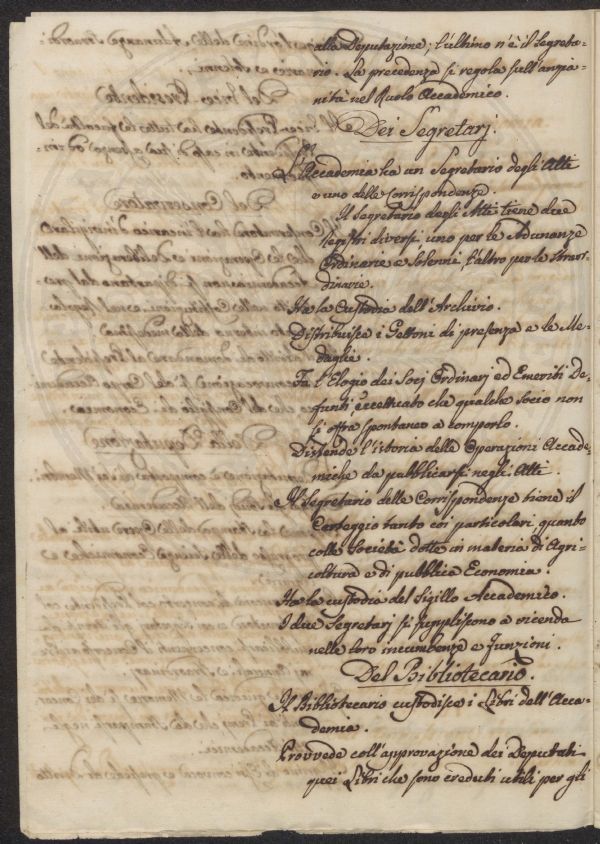 alla Deputazione; l'ultimo n'è il Segreta=
rio. La precedenza si regola sull'anzia=
nità nel Ruolo Accademico.
Dei Segretarj.
L'Accademia ha un Segretario degli Atti
e uno delle Corrispondenze.
Il Segretario degli Atti tiene due
registri diversi uno per le Adunanze
Ordinarie e Solenni, l'altro per le Straor=
dinarie.
Ha la Custodia dell'Archivio.
Distribuisce i Gettoni di presenza e le Me=
daglie.
Fa l'Elogio dei Socj Ordinarj ed Emeriti De=
funti eccettuato che qualche Socio non
si offra spontaneo a comporlo.
Distende l'istoria delle Operazioni Accade=
miche da pubblicarsi negli Atti.
Il Segretario delle Corrispondenze tiene il
Carteggio tanto coi particolari, quanto
colle Società dotte in materia di Agri=
coltura e di pubblica Economia.
Ha la custodia del Sigillo Accademico.
I due Segretarj si suppliscono a vicenda
nelle loro incumbenze e funzioni.
Del Bibliotecario.
Il Bibliotecario custodisce i Libri dell'Acca=
demia.
Provvede coll'approvazione dei Deputati
quei Libri che sono creduti utili per gli